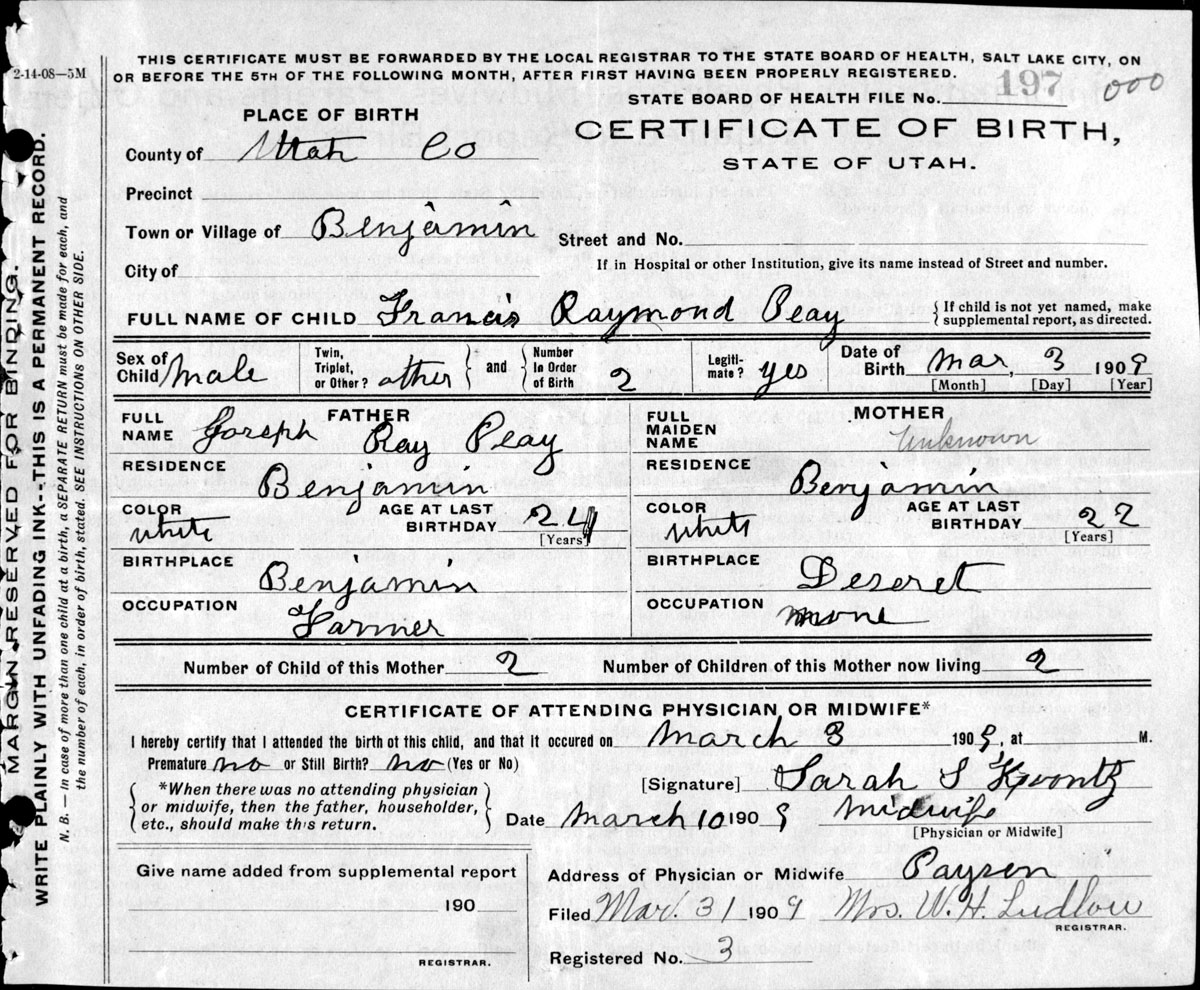 THIS CERTIFICATE MUST BE FORWARDED BY THE LOCAL REGISTRAR TO THE STATE BOARD OF HEALTH, SALT LAKE CITY, ON
OR BEFORE THE 5TH OF THE FOLLOWING MONTH, AFTER FIRST HAVING BEEN PROPERLY REGISTERED.
2-14-08—5M
STATE BOARD OF HEALTH FILE No. 197 000
PLACE OF BIRTH
CERTIFICATE OF BIRTH,
STATE OF UTAH.
County of Utah Co
Precinct
Town or Village of Benjamin
Street and No.
City of
If in Hospital or other Institution, give its name instead of Street and number.
FULL NAME OF CHILD Francis Raymond Peay { If child is not yet named, make
supplemental report, as directed.
Sex of Child male
Twin, Triplet, or Other? other } and { Number In Order of Birth 2
Legiti-mate? yes
Date of Birth Mar, 3 1909
[Month] [Day] [Year]
FATHER
FULL NAME Joseph Ray Peay
RESIDENCE Benjamin
COLOR white AGE AT LAST BIRTHDAY 24
[Years]
BIRTHPLACE Benjamin
OCCUPATION Farmer
MOTHER
FULL MAIDEN NAME Unknown
RESIDENCE Benjamin
COLOR white AGE AT LAST BIRTHDAY 22
[Years]
BIRTHPLACE Deseret
OCCUPATION none
Number of Child of this Mother 2 Number of Children of this Mother now living 2
CERTIFICATE OF ATTENDING PHYSICIAN OR MIDWIFE*
I hereby certify that I attended the birth of this child, and that it occured on March 3 1909, at M.
Premature no or Still Birth? no (Yes or No)
{ *When there was no attending physician
or midwife, then the father, householder,
etc., should make this return. }
[Signature] Sarah S Koontz
Date March 10 1909 Midwife
[Physician or Midwife]
Give name added from supplemental report
190
REGISTRAR.
Address of Physician or Midwife Payson
Filed Mar. 31 1909 Mrs. W. H. Ludlow
REGISTRAR.
Registered No. 3
MARGIN RESERVED FOR BINDING.
WRITE PLAINLY WITH UNFADING INK--THIS IS A PERMANENT RECORD.
N. B. — In case of more than one child at a birth, a SEPARATE RETURN must be made for each, and
the number of each, in order of birth, stated. SEE INSTRUCTIONS ON OTHER SIDE.